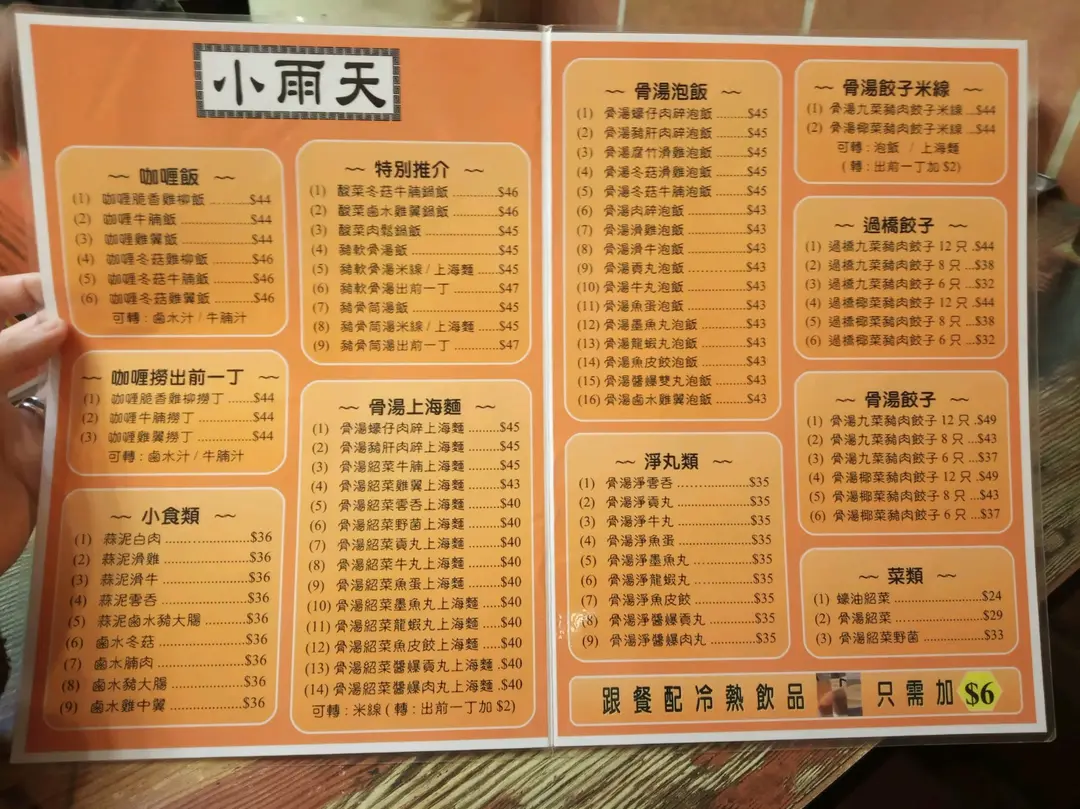 小雨天
咖喱飯
(1) 咖喱脆香雞柳飯 ..........$44
(2) 咖喱牛腩飯 ..........$44
(3) 咖喱雞翼飯 ..........$44
(4) 咖喱冬菇雞柳飯 ..........$46
(5) 咖喱冬菇牛腩飯 ..........$46
(6) 咖喱冬菇雞翼飯 ..........$46
可轉 : 鹵水汁 / 牛腩汁
咖喱撈出前一丁
(1) 咖喱脆香雞柳撈丁 ......$44
(2) 咖喱牛腩撈丁 ......$44
(3) 咖喱雞翼撈丁 ......$44
可轉 : 鹵水汁 / 牛腩汁
小食類
(1) 蒜泥白肉 ..........$36
(2) 蒜泥滑雞 ..........$36
(3) 蒜泥滑牛 ..........$36
(4) 蒜泥雲吞 ..........$36
(5) 蒜泥鹵水豬大腸 ..........$36
(6) 鹵水冬菇 ..........$36
(7) 鹵水腩肉 ..........$36
(8) 鹵水豬大腸 ..........$36
(9) 鹵水雞中翼 ..........$36
特別推介
(1) 酸菜冬菇牛腩鍋飯 ......$46
(2) 酸菜鹵水雞翼鍋飯 ......$46
(3) 酸菜肉鬆鍋飯 ......$45
(4) 豬軟骨湯飯 ......$45
(5) 豬軟骨湯米線 / 上海麵 ....$45
(6) 豬軟骨湯出前一丁 ......$47
(7) 豬骨筒湯飯 ......$45
(8) 豬骨筒湯米線 / 上海麵 ....$45
(9) 豬骨筒湯出前一丁 ......$47
骨湯上海麵
(1) 骨湯蠔仔肉碎上海麵 ......$45
(2) 骨湯豬肝肉碎上海麵 ......$45
(3) 骨湯紹菜牛腩上海麵 ......$45
(4) 骨湯紹菜雞翼上海麵 ......$43
(5) 骨湯紹菜雲吞上海麵 ......$40
(6) 骨湯紹菜野菌上海麵 ......$40
(7) 骨湯紹菜貢丸上海麵 ......$40
(8) 骨湯紹菜牛丸上海麵 ......$40
(9) 骨湯紹菜魚蛋上海麵 ......$40
(10) 骨湯紹菜墨魚丸上海麵 ....$40
(11) 骨湯紹菜龍蝦丸上海麵 ....$40
(12) 骨湯紹菜魚皮餃上海麵 ....$40
(13) 骨湯紹菜醬爆貢丸上海麵 .$40
(14) 骨湯紹菜醬爆肉丸上海麵 .$40
可轉 : 米線 ( 轉 : 出前一丁加 $2)
骨湯泡飯
(1) 骨湯蠔仔肉碎泡飯 ......$45
(2) 骨湯豬肝肉碎泡飯 ......$45
(3) 骨湯腐竹滑雞泡飯 ......$45
(4) 骨湯冬菇滑雞泡飯 ......$45
(5) 骨湯冬菇牛腩泡飯 ......$45
(6) 骨湯肉碎泡飯 ......$43
(7) 骨湯滑雞泡飯 ......$43
(8) 骨湯滑牛泡飯 ......$43
(9) 骨湯貢丸泡飯 ......$43
(10) 骨湯牛丸泡飯 ......$43
(11) 骨湯魚蛋泡飯 ......$43
(12) 骨湯墨魚丸泡飯 ......$43
(13) 骨湯龍蝦丸泡飯 ......$43
(14) 骨湯魚皮餃泡飯 ......$43
(15) 骨湯醬爆雙丸泡飯 ......$43
(16) 骨湯鹵水雞翼泡飯 ......$43
淨丸類
(1) 骨湯淨雲吞 ..........$35
(2) 骨湯淨貢丸 ..........$35
(3) 骨湯淨牛丸 ..........$35
(4) 骨湯淨魚蛋 ..........$35
(5) 骨湯淨墨魚丸 ..........$35
(6) 骨湯淨龍蝦丸 ..........$35
(7) 骨湯淨魚皮餃 ..........$35
(8) 骨湯淨醬爆貢丸 ..........$35
(9) 骨湯淨醬爆肉丸 ..........$35
骨湯餃子米線
(1) 骨湯九菜豬肉餃子米線 ...$44
(2) 骨湯椰菜豬肉餃子米線 ...$44
可轉 : 泡飯 / 上海麵
( 轉 : 出前一丁加 $2)
過橋餃子
(1) 過橋九菜豬肉餃子 12 只 .$44
(2) 過橋九菜豬肉餃子 8 只 ...$38
(3) 過橋九菜豬肉餃子 6 只 ...$32
(4) 過橋椰菜豬肉餃子 12 只 .$44
(5) 過橋椰菜豬肉餃子 8 只 ...$38
(6) 過橋椰菜豬肉餃子 6 只 ...$32
骨湯餃子
(1) 骨湯九菜豬肉餃子 12 只 .$49
(2) 骨湯九菜豬肉餃子 8 只 ...$43
(3) 骨湯九菜豬肉餃子 6 只 ...$37
(4) 骨湯椰菜豬肉餃子 12 只 .$49
(5) 骨湯椰菜豬肉餃子 8 只 ...$43
(6) 骨湯椰菜豬肉餃子 6 只 ...$37
菜類
(1) 蠔油紹菜 ..........$24
(2) 骨湯紹菜 ..........$29
(3) 骨湯紹菜野菌 ..........$33
跟餐配冷熱飲品 只需加 $6